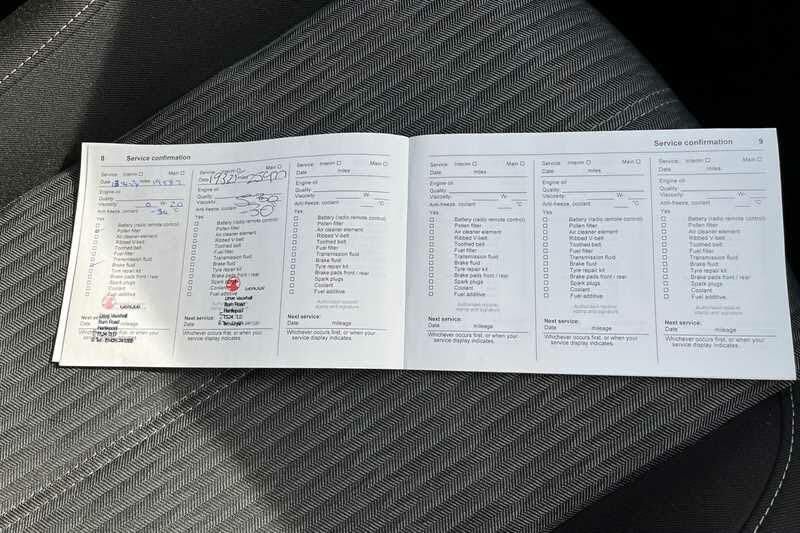 8 Service confirmation
Service: Interim Main
Date miles
Engine oil
Quality
Viscosity W-
Anti-freeze, coolant °C
-36
Yes
Battery (radio remote control)
Pollen filter
Air cleaner element
Ribbed V-belt
Toothed belt
Fuel filter
Transmission fluid
Brake fluid
Tyre repair kit
Brake pads front / rear
Spark plugs
Coolant
Fuel additive
Next service:
Date mileage
Whichever occurs first, or when your
service display indicates.
Service: Interim Main
Date miles
Engine oil
Quality
Viscosity
Anti-freeze, coolant
Yes
Battery (radio remote control)
Pollen filter
Air cleaner element
Ribbed V-belt
Toothed belt
Fuel filter
Transmission fluid
Brake fluid
Tyre repair kit
Brake pads front / rear
Spark plugs
Coolant
Fuel additive
Vauxhall
Burn Road
Hartlepool
Next service:
Date mileage
Whichever occurs first, or when your
service display indicates.
Service: Interim Main
Date miles
Engine oil
Quality
Viscosity W-
Anti-freeze, coolant °C
Yes
Battery (radio remote control)
Pollen filter
Air cleaner element
Ribbed V-belt
Toothed belt
Fuel filter
Transmission fluid
Brake fluid
Tyre repair kit
Brake pads front / rear
Spark plugs
Coolant
Fuel additive
Authorised repairer
stamp and signature
Next service:
Date mileage
Whichever occurs first, or when your
service display indicates.
Service confirmation 9
Service: Interim Main
Date miles
Engine oil
Quality
Viscosity W-
Anti-freeze, coolant °C
Yes
Battery (radio remote control)
Pollen filter
Air cleaner element
Ribbed V-belt
Toothed belt
Fuel filter
Transmission fluid
Brake fluid
Tyre repair kit
Brake pads front / rear
Spark plugs
Coolant
Fuel additive
Authorised repairer
stamp and signature
Next service:
Date mileage
Whichever occurs first, or when your
service display indicates.
Service: Interim Main
Date miles
Engine oil
Quality
Viscosity W-
Anti-freeze, coolant °C
Yes
Battery (radio remote control)
Pollen filter
Air cleaner element
Ribbed V-belt
Toothed belt
Fuel filter
Transmission fluid
Brake fluid
Tyre repair kit
Brake pads front / rear
Spark plugs
Coolant
Fuel additive
Authorised repairer
stamp and signature
Next service:
Date mileage
Whichever occurs first, or when your
service display indicates.
Service: Interim Main
Date miles
Engine oil
Quality
Viscosity W-
Anti-freeze, coolant °C
Yes
Battery (radio remote control)
Pollen filter
Air cleaner element
Ribbed V-belt
Toothed belt
Fuel filter
Transmission fluid
Brake fluid
Tyre repair kit
Brake pads front / rear
Spark plugs
Coolant
Fuel additive
Authorised repairer
stamp and signature
Next service:
Date mileage
Whichever occurs first, or when your
service display indicates.